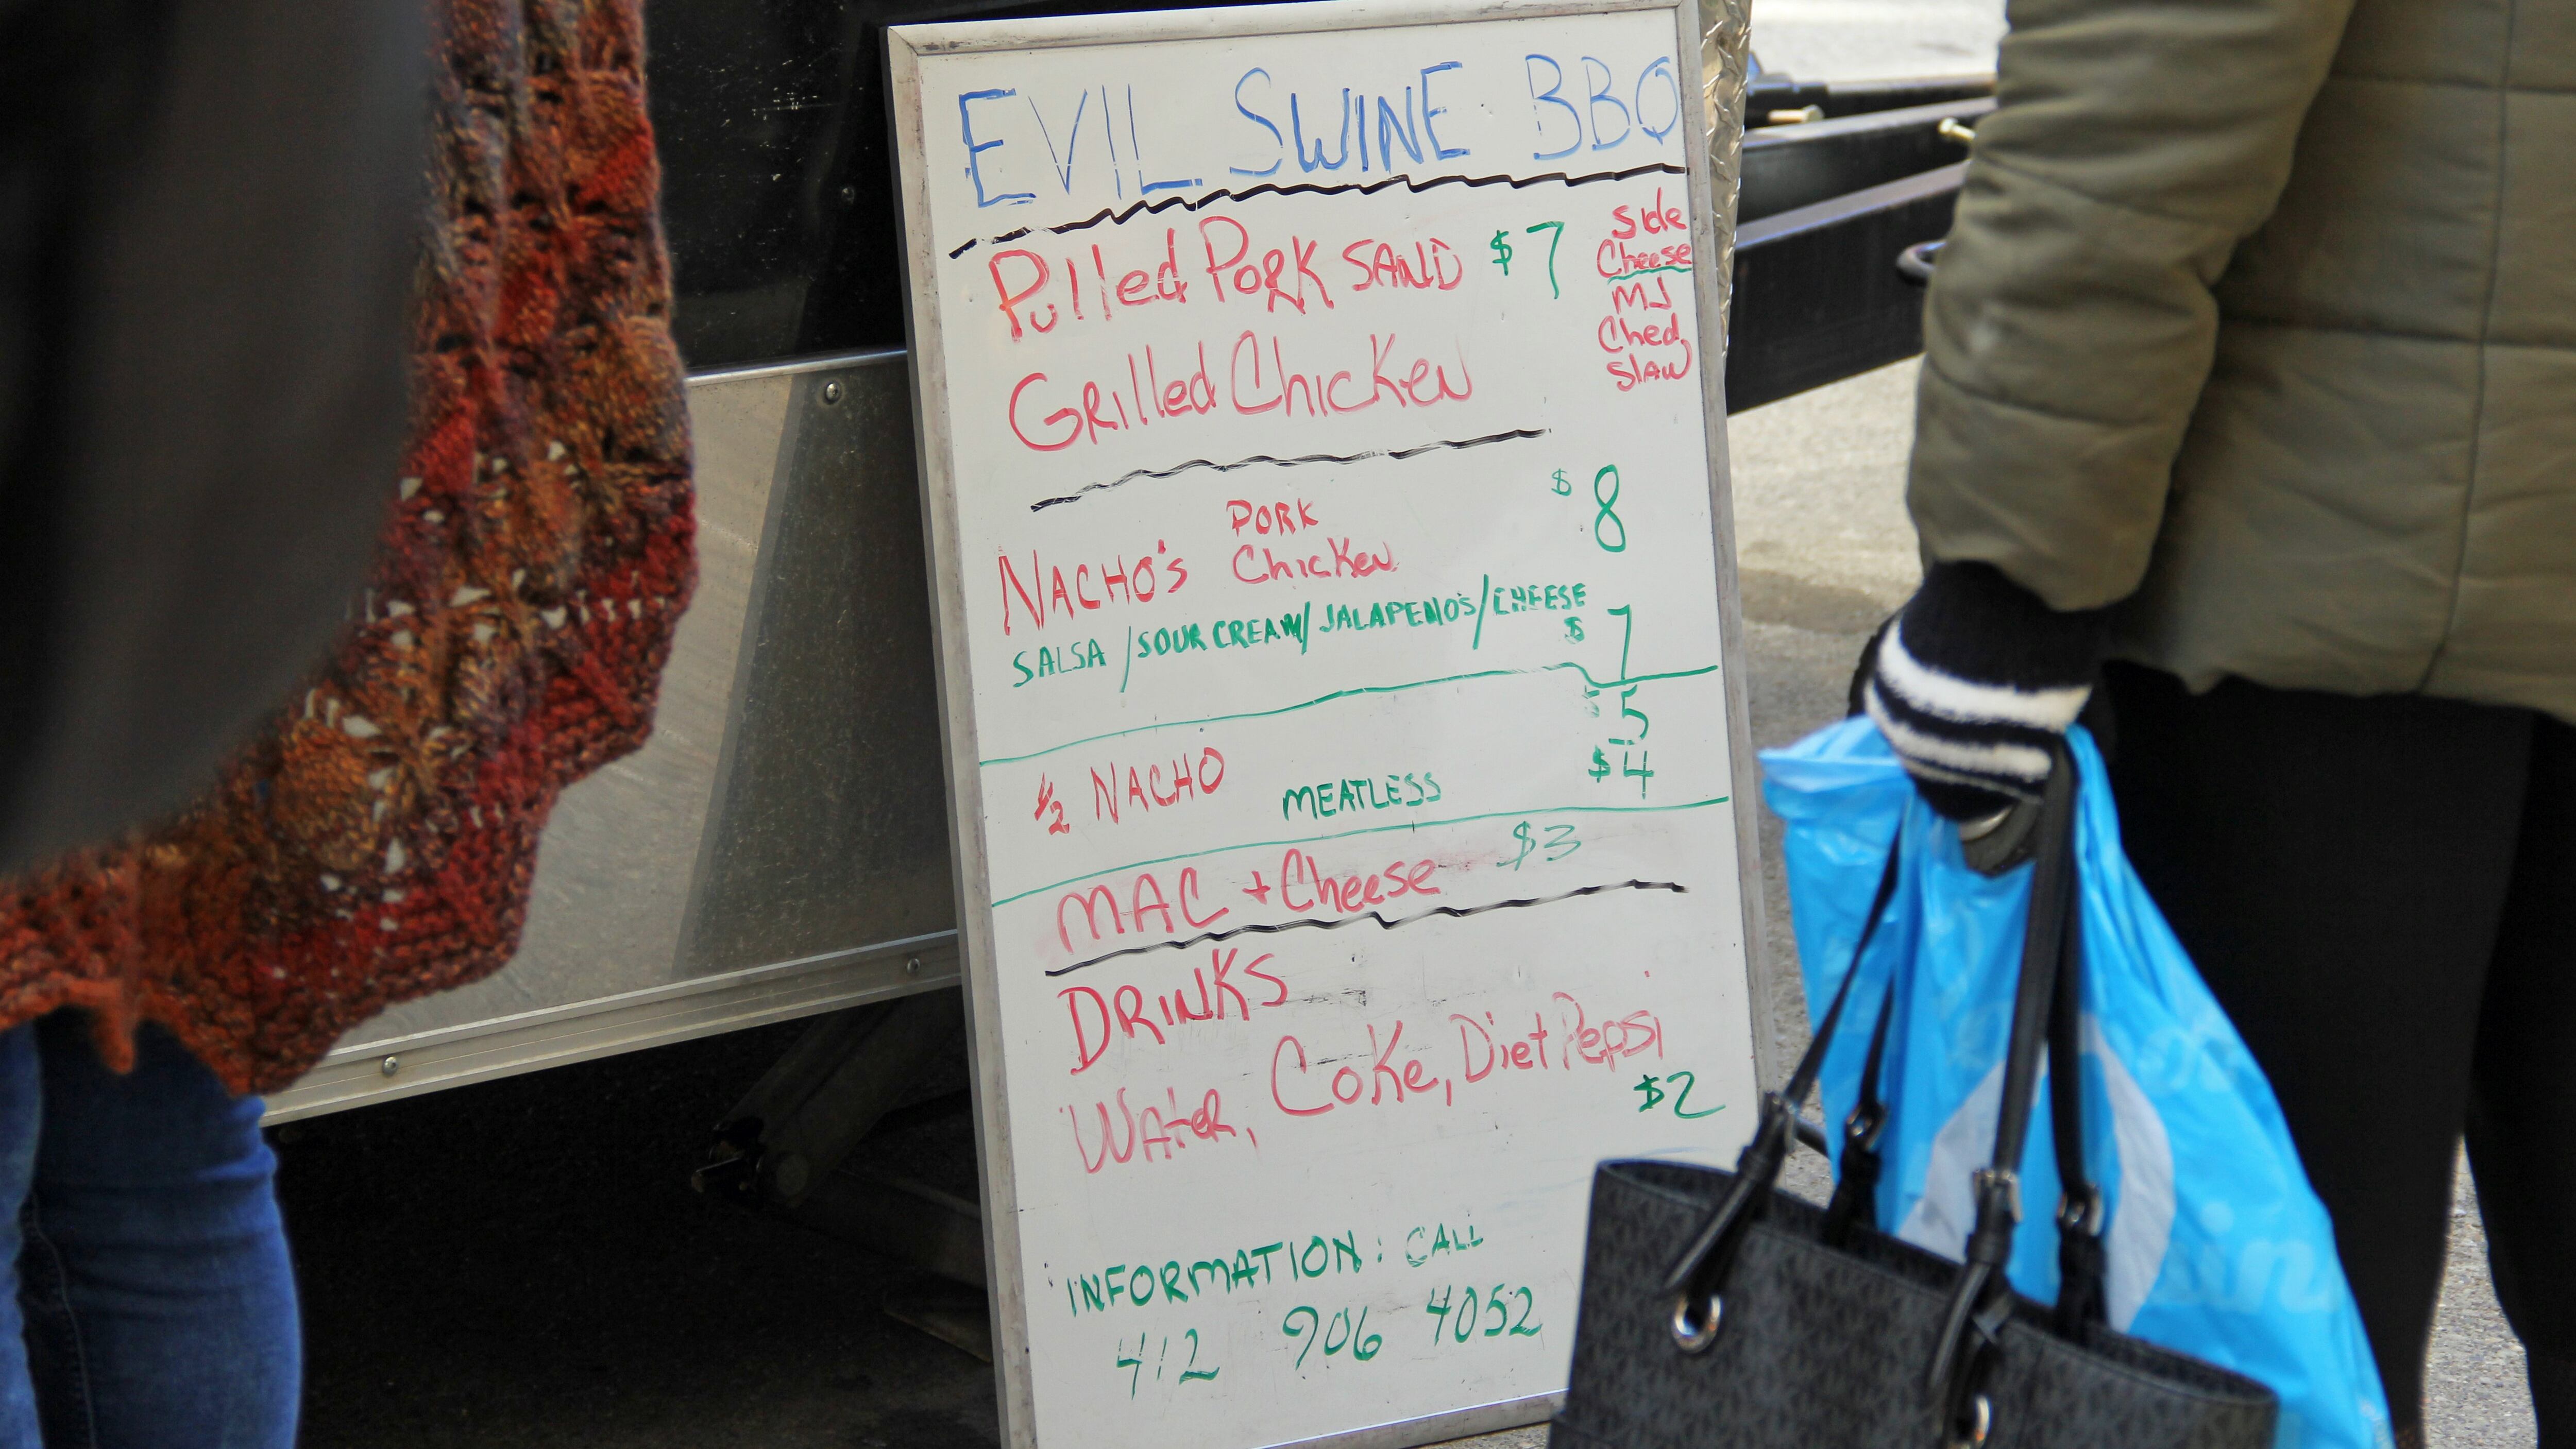 EVIL SWINE BBQ
Pulled Pork SAND $7
Side
Cheese
MJ
Ched
Slaw
Grilled Chicken
NACHO's PORK $8
Chicken
SALSA / SOUR CREAM / JALAPENO'S / CHEESE
$7
$5
1/2 NACHO MEATLESS $4
MAC + Cheese $3
DRINKS
Water, Coke, Diet Pepsi
$2
INFORMATION: CALL
412 906 4052